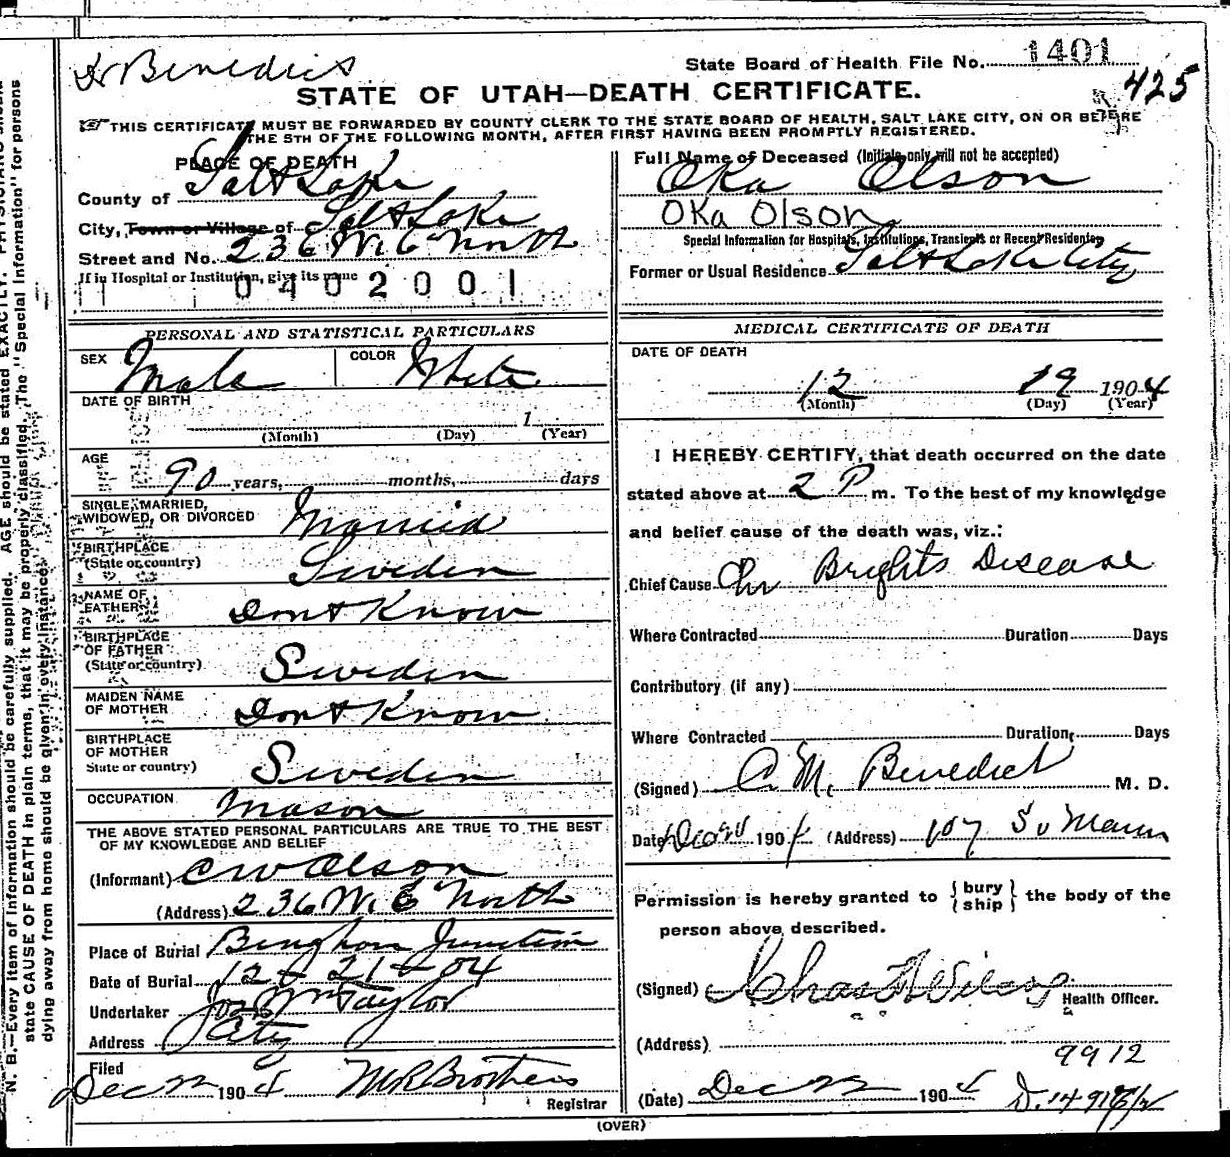 Dr Benedict
State Board of Health File No. 1401
425
STATE OF UTAH—DEATH CERTIFICATE.
THIS CERTIFICATE MUST BE FORWARDED BY COUNTY CLERK TO THE STATE BOARD OF HEALTH, SALT LAKE CITY, ON OR BEFORE
THE 5TH OF THE FOLLOWING MONTH, AFTER FIRST HAVING BEEN PROMPTLY REGISTERED.
PLACE OF DEATH
County of Salt Lake
City, Town or Village of Salt Lake
Street and No. 236 W. 6 North
If in Hospital or Institution, give its name
0402001
Full Name of Deceased (Initials only will not be accepted)
Oka Olson
Oka Olson
Special Information for Hospitals, Institutions, Transients or Recent Residents
Former or Usual Residence Salt Lake City
PERSONAL AND STATISTICAL PARTICULARS
SEX Male COLOR White
DATE OF BIRTH
1
(Month) (Day) (Year)
AGE
90 years, months, days
SINGLE, MARRIED,
WIDOWED, OR DIVORCED Married
BIRTHPLACE
(State or country) Sweden
NAME OF
FATHER Dont Know
BIRTHPLACE
OF FATHER
(State or country) Sweden
MAIDEN NAME
OF MOTHER Dont Know
BIRTHPLACE
OF MOTHER
State or country) Sweden
OCCUPATION Mason
THE ABOVE STATED PERSONAL PARTICULARS ARE TRUE TO THE BEST
OF MY KNOWLEDGE AND BELIEF
(Informant) C W Olson
(Address) 236 W. 6 North
Place of Burial Bingham Junction
Date of Burial 12 + 21 + 04
Undertaker Jos Wm Taylor
Address City
Filed
Dec 22 1904 M R Brothers
Registrar
MEDICAL CERTIFICATE OF DEATH
DATE OF DEATH
12 19 1904
(Month) (Day) (Year)
I HEREBY CERTIFY, that death occurred on the date
stated above at 2 P m. To the best of my knowledge
and belief cause of the death was, viz.:
Chief Cause Chr Brights Disease
Where Contracted Duration Days
Contributory (if any)
Where Contracted Duration Days
(Signed) C. M. Benedict M. D.
Date 1904 (Address) 107 So Main
Permission is hereby granted to {bury
ship} the body of the
person above described.
(Signed) Chas Wilcox Health Officer.
(Address)
9912
(Date) Dec 22 1904
(OVER)
N. B.—Every item of information should be carefully supplied. AGE should be stated EXACTLY. PHYSICIANS should
state CAUSE OF DEATH in plain terms, that it may be properly classified. The "Special Information" for persons
dying away from home should be given in every instance.